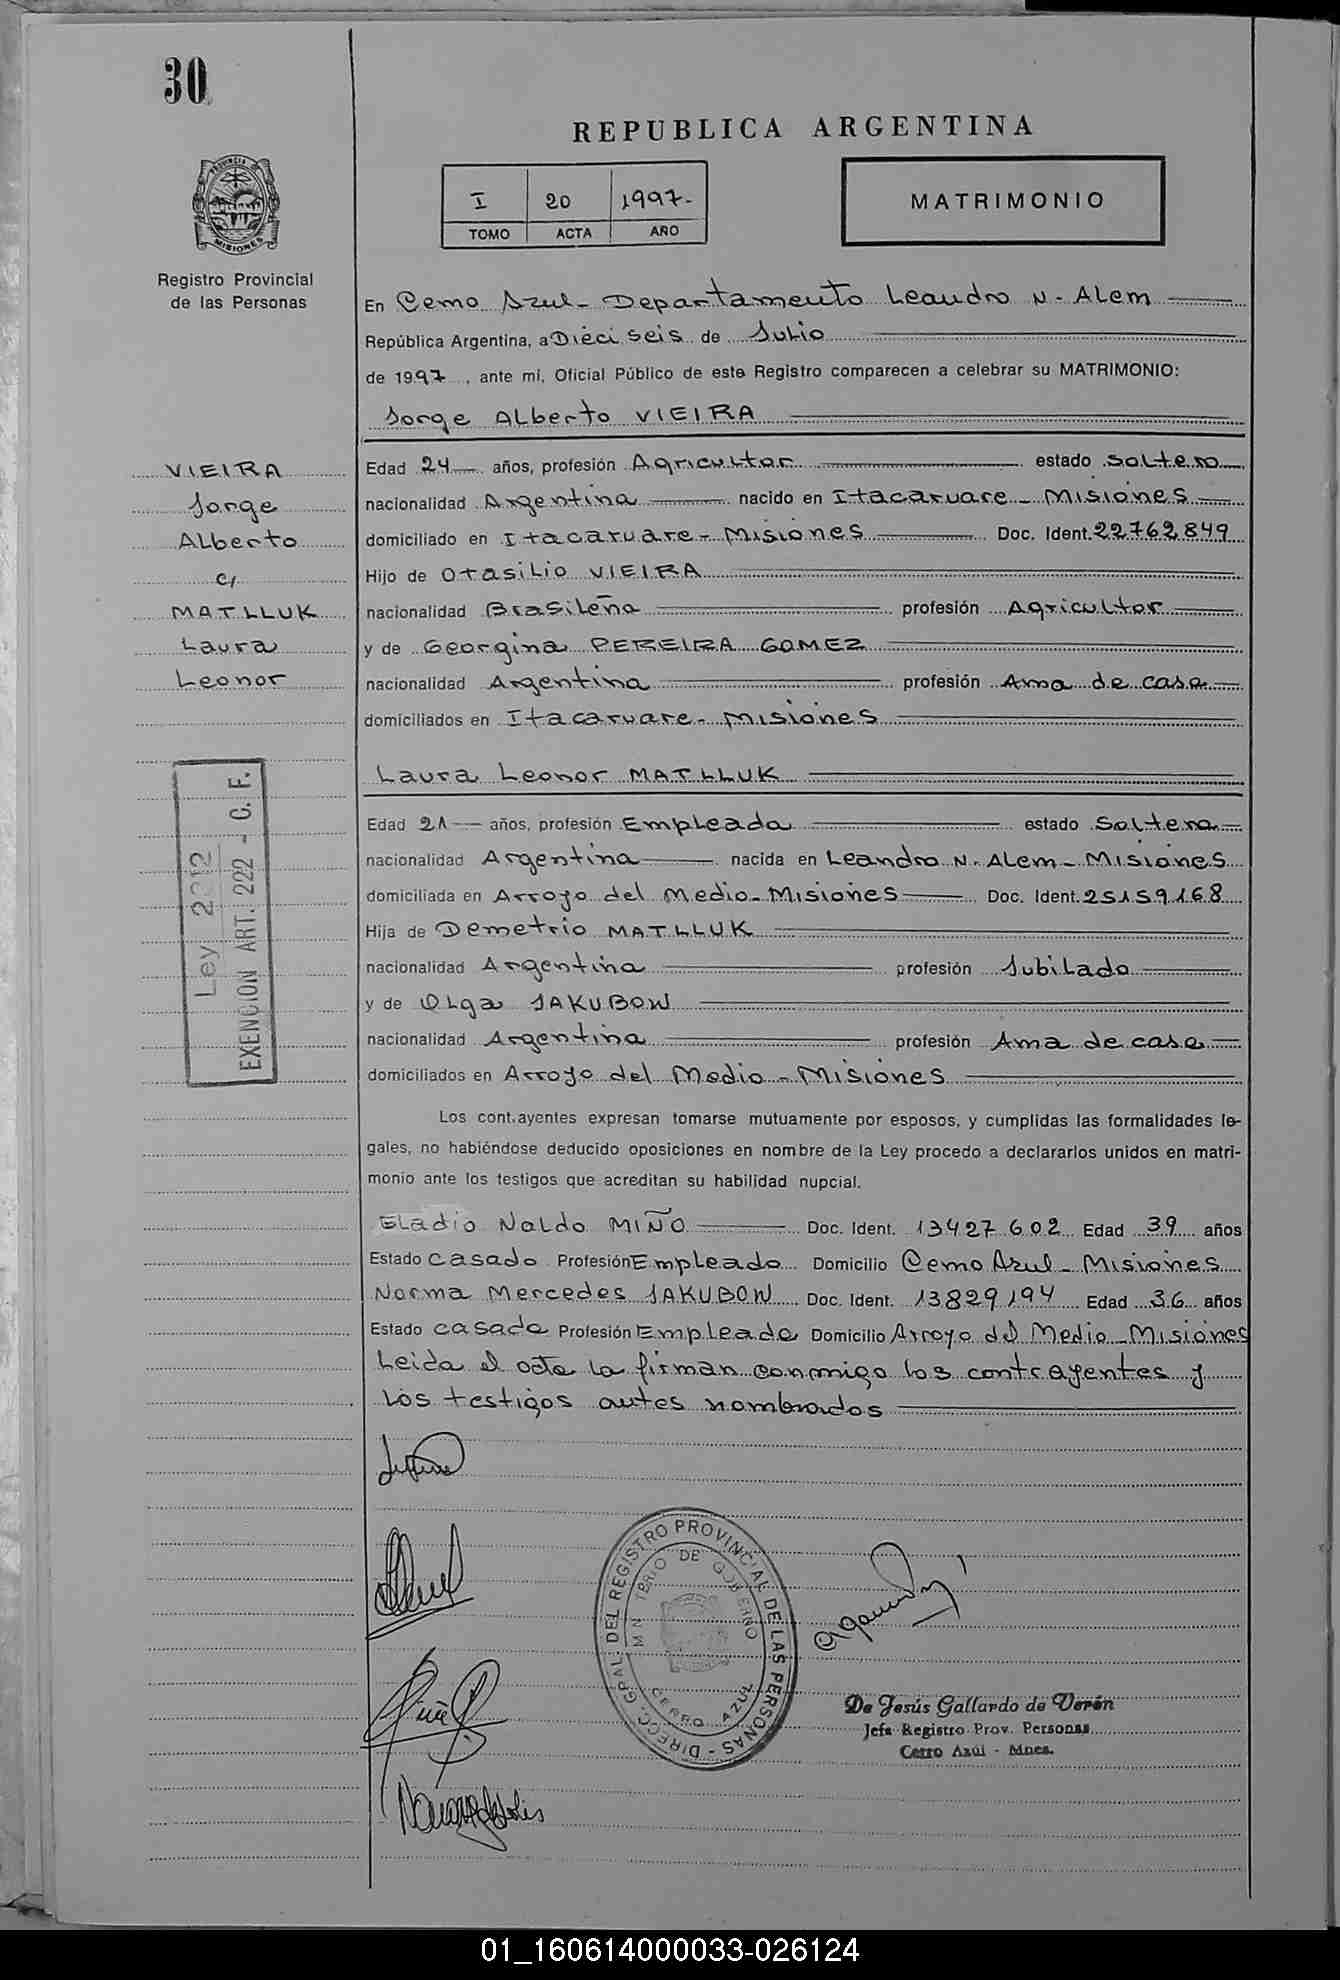 30
REPUBLICA ARGENTINA
I 20 1997-
TOMO ACTA AÑO
MATRIMONIO
PROVINCIA DE
MISIONES
Registro Provincial
de las Personas
En Cerro Azul - Departamento Leandro N. Alem
República Argentina, a Dieci seis de Julio
de 1997, ante mí, Oficial Público de este Registro comparecen a celebrar su MATRIMONIO:
Jorge Alberto VIEIRA
VIEIRA
Jorge
Alberto
c/
MATLLUK
Laura
Leonor
Edad 24 años, profesión Agricultor estado soltero
nacionalidad Argentina nacido en Itacaruare - Misiones
domiciliado en Itacaruare - Misiones Doc. Ident. 22762849
Hijo de Otasilio VIEIRA
nacionalidad Brasileña profesión Agricultor
y de Georgina PEREIRA GOMEZ
nacionalidad Argentina profesión Ama de casa
domiciliados en Itacaruare - Misiones
Laura Leonor MATLLUK
Ley 2202
EXENCION ART. 222 - C. F.
Edad 21 años, profesión Empleada estado Soltera
nacionalidad Argentina nacida en Leandro N. Alem - Misiones
domiciliada en Arroyo del Medio - Misiones Doc. Ident. 25159168
Hija de Demetrio MATLLUK
nacionalidad Argentina profesión Jubilado
y de Olga JAKUBOW
nacionalidad Argentina profesión Ama de casa
domiciliados en Arroyo del Medio - Misiones
Los cont.ayentes expresan tomarse mutuamente por esposos, y cumplidas las formalidades le-
gales, no habiéndose deducido oposiciones en nombre de la Ley procedo a declararlos unidos en matri-
monio ante los testigos que acreditan su habilidad nupcial.
Eladio Naldo MIÑO Doc. Ident. 13427602 Edad 39 años
Estado casado Profesión Empleado Domicilio Cerro Azul - Misiones
Norma Mercedes JAKUBOW Doc. Ident. 13829194 Edad 36 años
Estado casada Profesión Empleada Domicilio Arroyo del Medio - Misiones
Leida el acta la firman conmigo los contrayentes y
los testigos antes nombrados
DIRECC. GRAL. DEL REGISTRO PROVINCIAL DE LAS PERSONAS -
MIN TERIO DE GOBIERNO
CERRO AZUL
De Jesús Gallardo de Verón
Jefa Registro Prov. Personas
Cerro Azúl - Mnes.
01_160614000033-026124